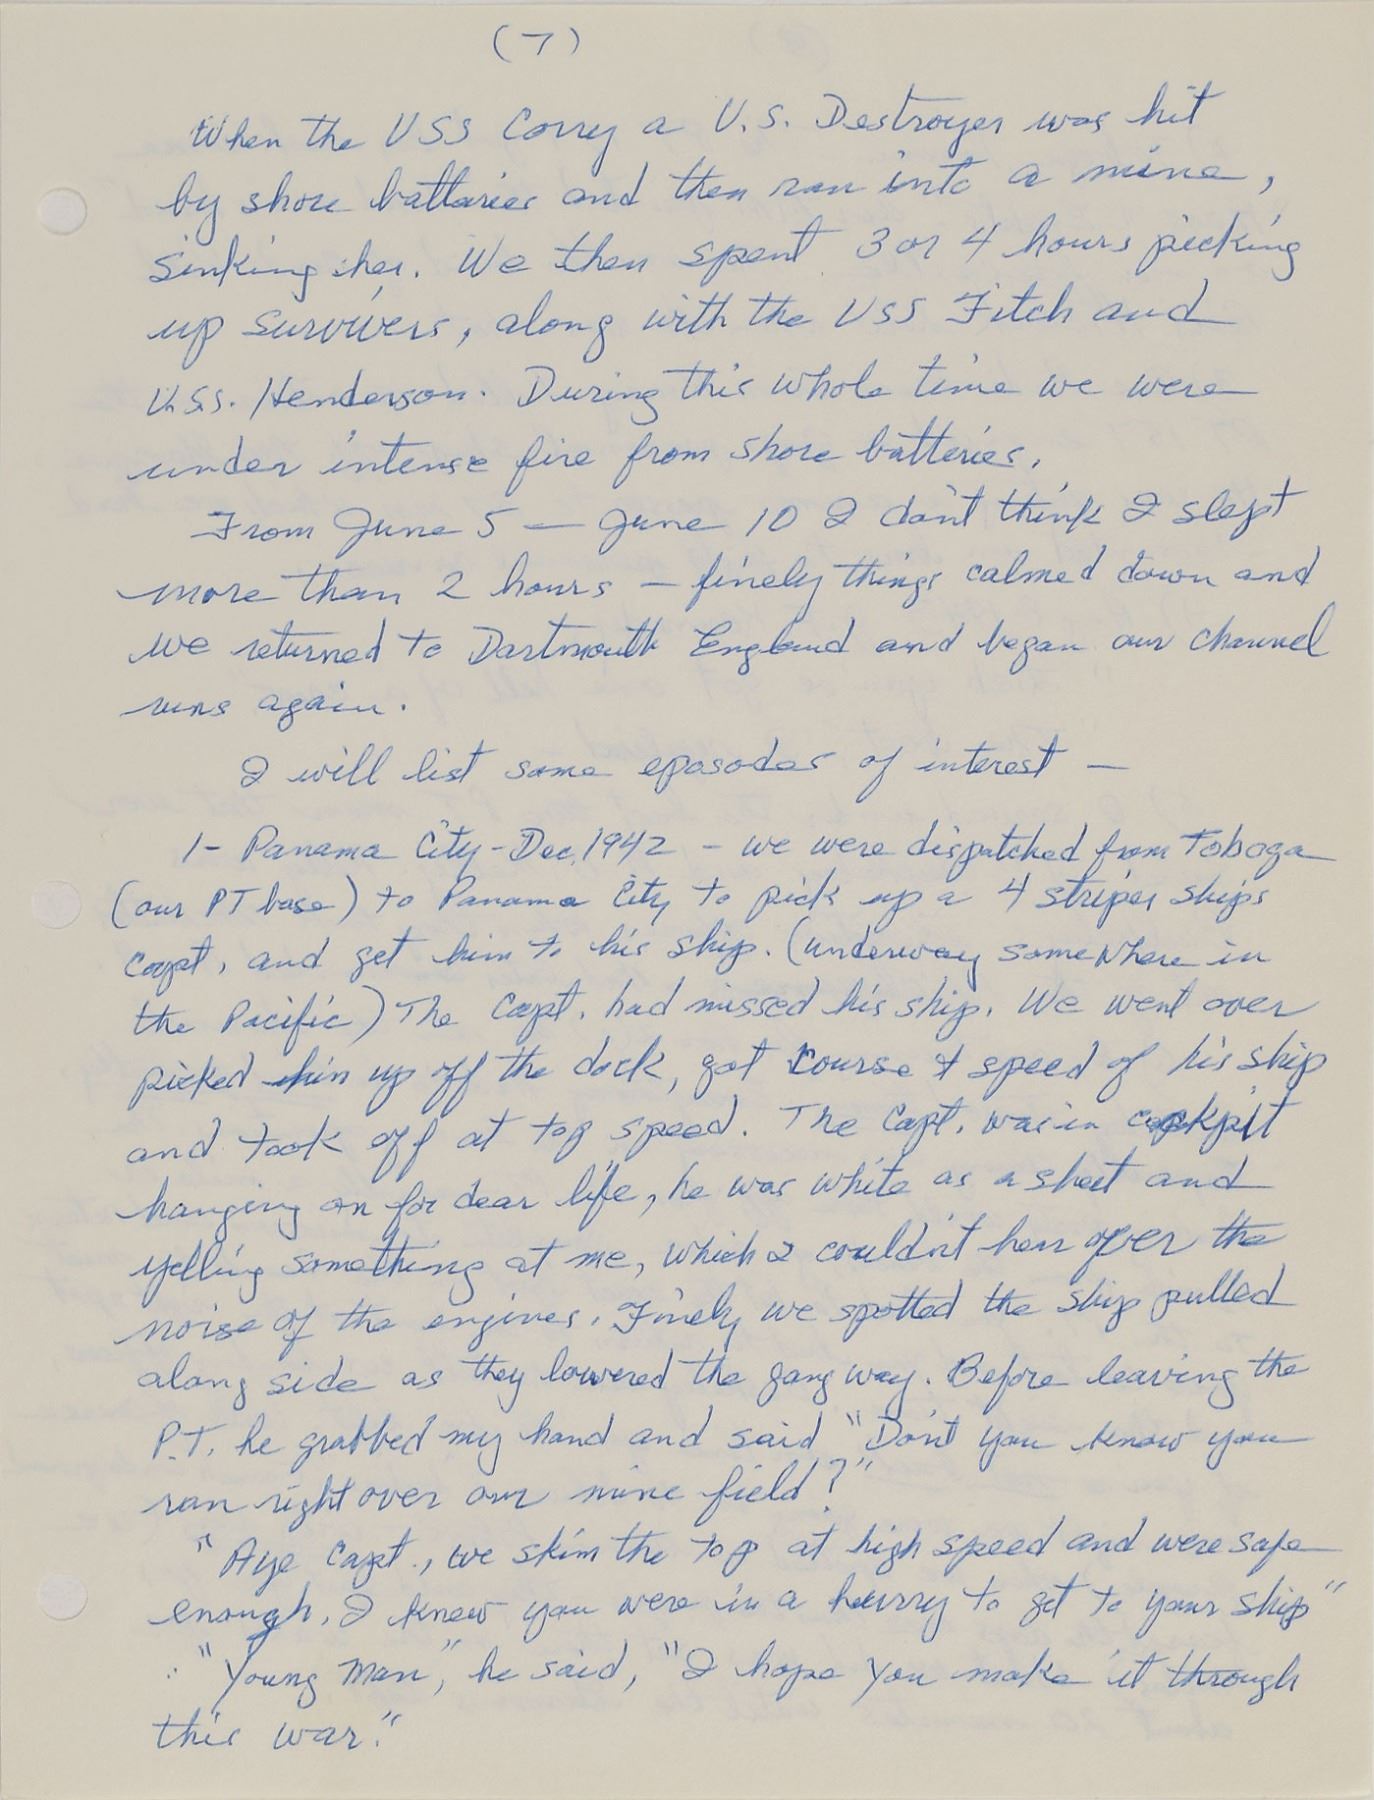 (7)
When the USS Corry a U.S. Destroyer was hit
by shore battaries and then ran into a mine,
sinking her. We then spent 3 or 4 hours picking
up survivers, along with the USS Fitch and
U.S.S. Henderson. During this whole time we were
under intense fire from shore batteries.
From June 5 — June 10 I don't think I slept
more than 2 hours — finely things calmed down and
we returned to Dartmouth England and began our channel
runs again.
I will list some eposodes of interest —
1- Panama City - Dec, 1942 - we were dispatched from Toboga
(our PT base) to Panama City to pick up a 4 striper ships
Capt, and get him to his ship. (underway somewhere in
the Pacific) The Capt. had missed his ship. We went over
picked him up off the dock, got course & speed of his ship
and took off at top speed. The Capt. was in cockpit
hanging on for dear life, he was white as a sheet and
yelling something at me, which I couldn't hear over the
noise of the engines. Finely we spotted the ship pulled
along side as they lowered the gang way. Before leaving the
P.T. he grabbed my hand and said "Don't you know you
ran right over our mine field?"
"Aye Capt., we skim the top at high speed and were safe
enough, I knew you were in a hurry to get to your ship"
"Young Man", he said, "I hope you make it through
this war."